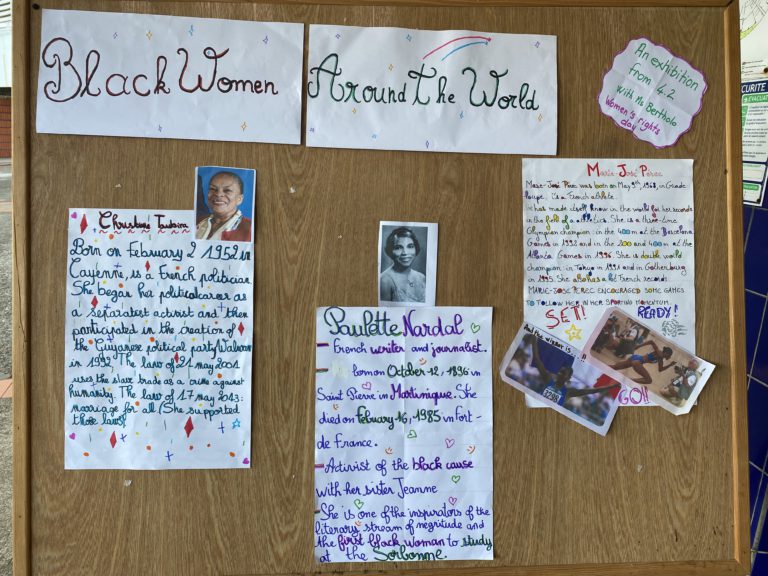 Black Women
Around The World
An exhibition
from 4.2
with Ms Bertholo
Women's rights
day
Christiane Taubira
Born on February 2 1952 in
Cayenne, is a French politician.
She began her political career as
a separatest activist and then
participated in the creation of
the Guyanese political party Walwari
in 1992. The law of 21 may 2001
uses the slave trade as a crime against
humanity. The law of 17 may 2013:
marriage for all / She supported
those laws!
Paulette Nardal
French writer and journalist.
born on October 12, 1896 in
Saint Pierre in Martinique. She
died on February 16, 1985 in Fort-
de France.
Activist of the black cause
with her sister Jeanne
She is one of the inspirators of the
literary stream of negritude and
the first black woman to study
at the Sorbonne.
Marie-José Perec
Marie-José Perec was born on May 9th, 1968, in Guade
loupe, is a French athlete.
has made itself know in the world for her records
in the field of athletics. She is a three-time
Olympian champion: in the 400m at the Barcelona
Games in 1992 and in the 200 and 400m at the
Atlanta Games in 1996. She is double world
champion: in Tokyo in 1991 and in Gothenburg
in 1995. She also has a lot French record.
MARIE-JOSÉ PEREC ENCOURAGED SOME GAMES
TO FOLLOW HER IN HER SPORTING MOMENTUM
READY!
SET!
And the winner is
GO!!